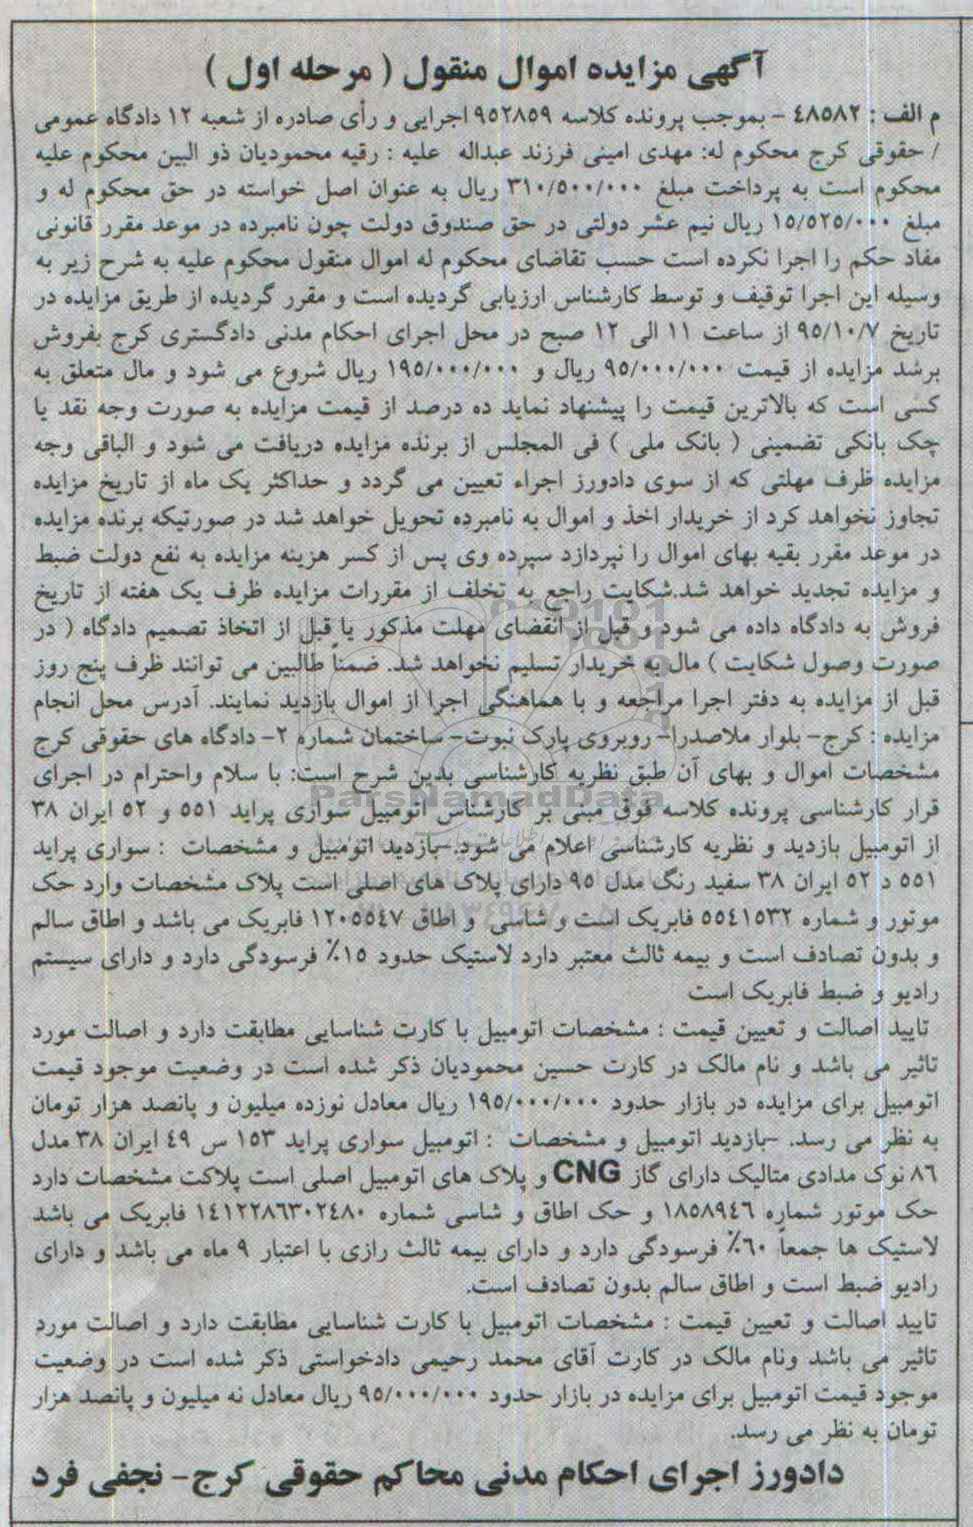 آگهی مزایده اموال منقول ( مرحله اول )
م الف : ٤٨٥٨٢ - بموجب پرونده کلاسه ٩٥٢٨٥٩ اجرایی و رأی صادره از شعبه ١٢ دادگاه عمومی
/ حقوقی کرج محکوم له: مهدی امینی فرزند عبداله علیه : رقیه محمودیان ذو البین محکوم علیه
محکوم است به پرداخت مبلغ ٣١٠/٥٠٠/٠٠٠ ریال به عنوان اصل خواسته در حق محکوم له و
مبلغ ١٥/٥٢٥/٠٠٠ ریال نیم عشر دولتی در حق صندوق دولت چون نامبرده در موعد مقرر قانونی
مفاد حکم را اجرا نکرده است حسب تقاضای محکوم له اموال منقول محکوم علیه به شرح زیر به
وسیله این اجرا توقیف و توسط کارشناس ارزیابی گردیده است و مقرر گردیده از طریق مزایده در
تاریخ ٩٥/١٠/٧ از ساعت ١١ الی ١٢ صبح در محل اجرای احکام مدنی دادگستری کرج بفروش
برشد مزایده از قیمت ٩٥/٠٠٠/٠٠٠ ریال و ١٩٥/٠٠٠/٠٠٠ ریال شروع می شود و مال متعلق به
کسی است که بالاترین قیمت را پیشنهاد نماید ده درصد از قیمت مزایده به صورت وجه نقد یا
چک بانکی تضمینی ( بانک ملی ) فی المجلس از برنده مزایده دریافت می شود و الباقی وجه
مزایده ظرف مهلتی که از سوی دادورز اجراء تعیین می گردد و حداکثر یک ماه از تاریخ مزایده
تجاوز نخواهد کرد از خریدار اخذ و اموال به نامبرده تحویل خواهد شد در صورتیکه برنده مزایده
در موعد مقرر بقیه بهای اموال را نپردازد سپرده وی پس از کسر هزینه مزایده به نفع دولت ضبط
و مزایده تجدید خواهد شد.شکایت راجع به تخلف از مقررات مزایده ظرف یک هفته از تاریخ
فروش به دادگاه داده می شود و قبل از انقضای مهلت مذکور یا قبل از اتخاذ تصمیم دادگاه ( در
صورت وصول شکایت ) مال به خریدار تسلیم نخواهد شد. ضمناً طالبین می توانند ظرف پنج روز
قبل از مزایده به دفتر اجرا مراجعه و با هماهنگی اجرا از اموال بازدید نمایند. آدرس محل انجام
مزایده : کرج- بلوار ملاصدرا- روبروی پارک نبوت- ساختمان شماره ٢- دادگاه های حقوقی کرج
مشخصات اموال و بهای آن طبق نظریه کارشناسی بدین شرح است: با سلام واحترام در اجرای
ParsNamadData
قرار کارشناسی پرونده کلاسه فوق مبنی بر کارشناس اتومبیل سواری پراید ٥٥١ و ٥٢ ایران ٣٨
از اتومبیل بازدید و نظریه کارشناسی اعلام می شود.-بازدید اتومبیل و مشخصات : سواری پراید
٥٥١ د ٥٢ ایران ٣٨ سفید رنگ مدل ٩٥ دارای پلاک های اصلی است پلاک مشخصات وارد حک
موتور و شماره ٥٥٤١٥٣٢ فابریک است و شاسی و اطاق ١٢٠٥٥٤٧ فابریک می باشد و اطاق سالم
و بدون تصادف است و بیمه ثالث معتبر دارد لاستیک حدود ١٥٪ فرسودگی دارد و دارای سیستم
رادیو و ضبط فابریک است
تایید اصالت و تعیین قیمت : مشخصات اتومبیل با کارت شناسایی مطابقت دارد و اصالت مورد
تاثیر می باشد و نام مالک در کارت حسین محمودیان ذکر شده است در وضعیت موجود قیمت
اتومبیل برای مزایده در بازار حدود ١٩٥/٠٠٠/٠٠٠ ریال معادل نوزده میلیون و پانصد هزار تومان
به نظر می رسد. -بازدید اتومبیل و مشخصات : اتومبیل سواری پراید ١٥٣ س ٤٩ ایران ٣٨ مدل
٨٦ نوک مدادی متالیک دارای گاز CNG و پلاک های اتومبیل اصلی است پلاکت مشخصات دارد
حک موتور شماره ١٨٥٨٩٤٦ و حک اطاق و شاسی شماره ١٤١٢٢٨٦٣٠٢٤٨٠ فابریک می باشد
لاستیک ها جمعاً ٦٠٪ فرسودگی دارد و دارای بیمه ثالث رازی با اعتبار ٩ ماه می باشد و دارای
رادیو ضبط است و اطاق سالم بدون تصادف است.
تایید اصالت و تعیین قیمت : مشخصات اتومبیل با کارت شناسایی مطابقت دارد و اصالت مورد
تاثیر می باشد ونام مالک در کارت آقای محمد رحیمی دادخواستی ذکر شده است در وضعیت
موجود قیمت اتومبیل برای مزایده در بازار حدود ٩٥/٠٠٠/٠٠٠ ریال معادل نه میلیون و پانصد هزار
تومان به نظر می رسد.
دادورز اجرای احکام مدنی محاکم حقوقی کرج- نجفی فرد